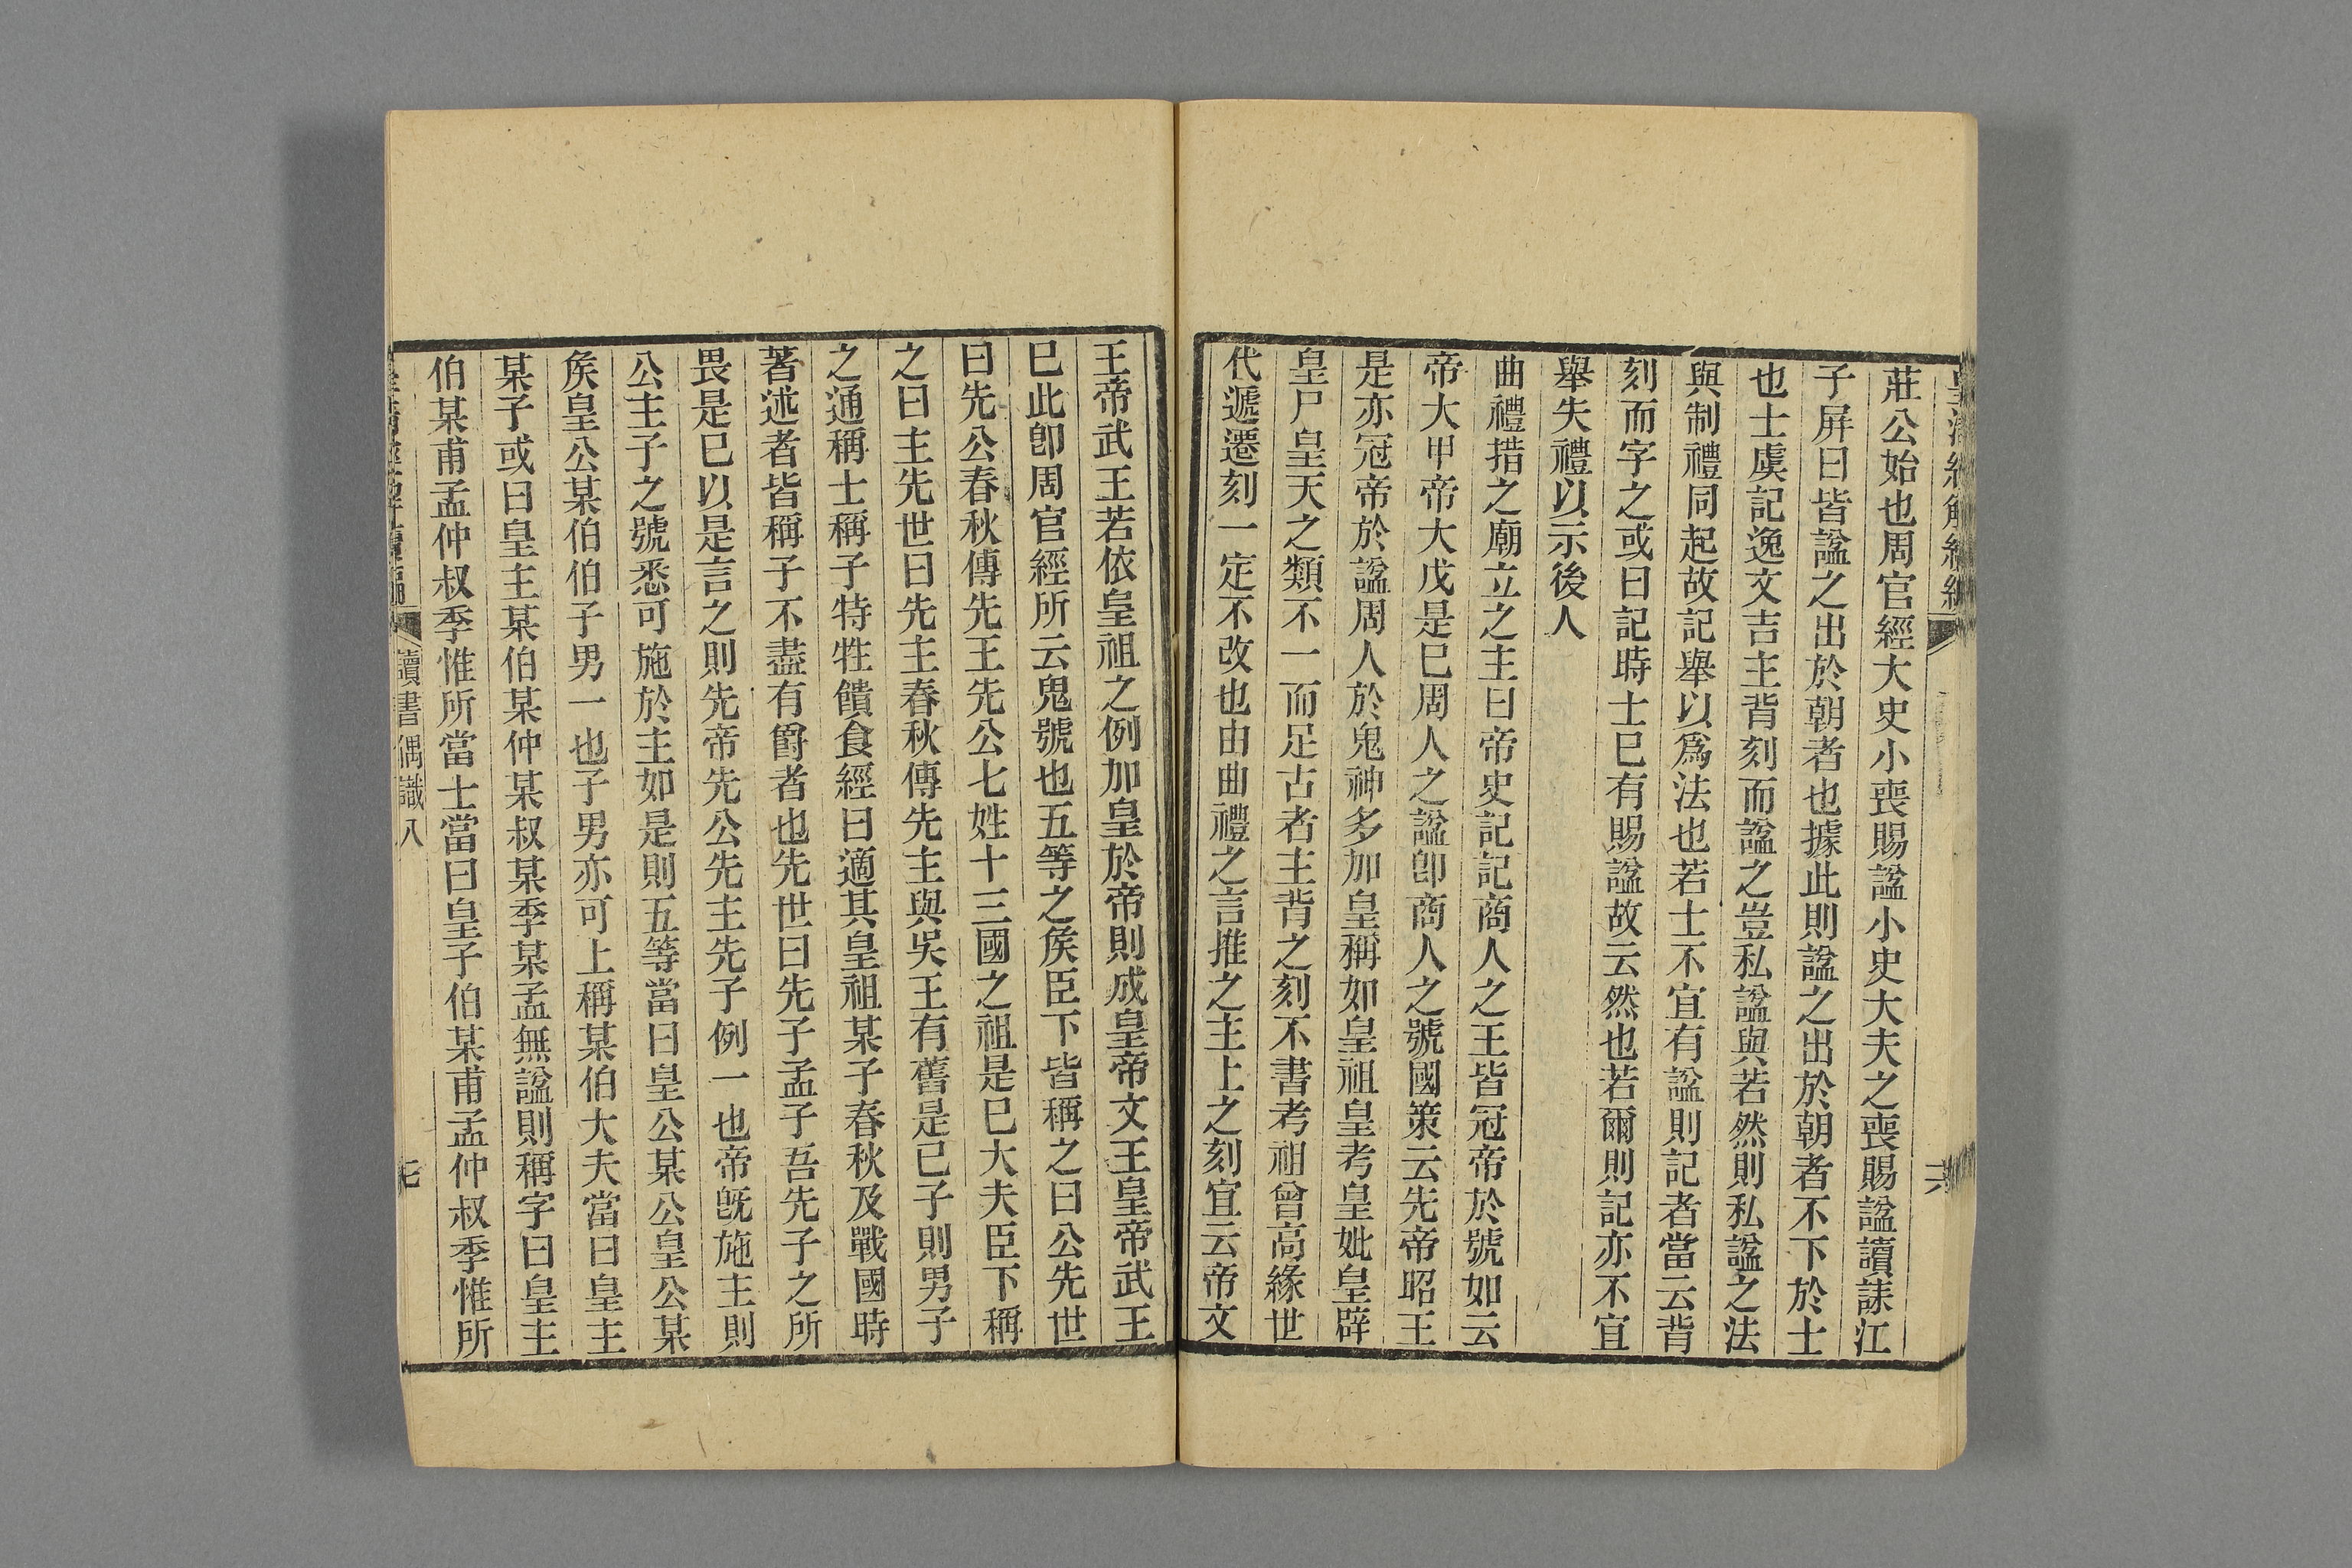 莊公始也周官經大史小喪賜諡小史大夫之喪賜諡讀誄江
子屏曰皆諡之出於朝者也據此則諡之出於朝者不下於士
也士虞記逸文吉主背刻而諡之豈私諡與若然則私諡之法
與制禮同起故記舉以爲法也若士不宜有諡則記者當云背
刻而字之或曰記時士已有賜諡故云然也若爾則記亦不宜
舉失禮以示後人
曲禮措之廟立之主曰帝史記記商人之王皆冠帝於號如云
帝大甲帝大戊是已周人之諡卽商人之號國策云先帝昭王
是亦冠帝於諡周人於鬼神多加皇稱如皇祖皇考皇妣皇辟
皇尸皇天之類不一而足古者主背之刻不書考祖曾高緣世
代遞遷刻一定不改也由曲禮之言推之主上之刻宜云帝文
王帝武王若依皇祖之例加皇於帝則成皇帝文王皇帝武王
已此卽周官經所云鬼號也五等之矦臣下皆稱之曰公先世
曰先公春秋傳先王先公七姓十三國之祖是已大夫臣下稱
之曰主先世曰先主春秋傳先主與吳王有舊是已子則男子
之通稱士稱子特牲饋食經曰適其皇祖某子春秋及戰國時
著述者皆稱子不盡有爵者也先世曰先子孟子吾先子之所
畏是已以是言之則先帝先公先主先子例一也帝旣施主則
公主子之號悉可施於主如是則五等當曰皇公某公皇公某
矦皇公某伯伯子男一也子男亦可上稱某伯大夫當曰皇主
某子或曰皇主某伯某仲某叔某季某孟無諡則稱字曰皇主
伯某甫孟仲叔季惟所當士當曰皇子伯某甫孟仲叔季惟所
皇清經解續編
讀書偶識八
七